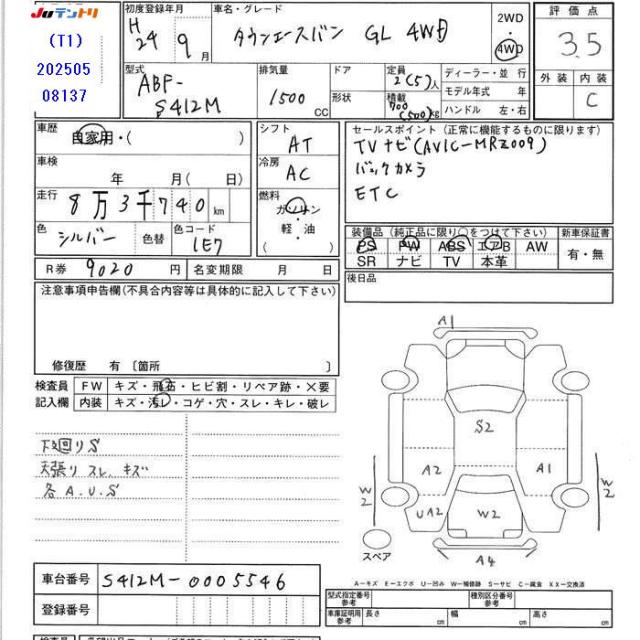 JUテントリ
(T1)
202505
08137
初度登録年月
H24 9月
車名・グレード
タウンエースバン GL 4WD
2WD
・
4WD
評価点
3.5
外装 内装
C
型式
ABF-
S412M
排気量
1500 CC
ドア
形状
定員
2(5)人
積載
700(500)KG
ディーラー・並行
モデル年式 年
ハンドル 左・右
車歴
自家用・( )
車検
年 月( 日)
走行
8万3千740 km
色
シルバー
色替
色コード
1E7
シフト
AT
冷房
AC
燃料
ガソリン
・
軽・油
( )
セールスポイント(正常に機能するものに限ります)
TVナビ(AVIC-MRZ009)
バックカメラ
ETC
装備品(純正品に限り○をつけて下さい)
PS PW ABS エアB AW
SR ナビ TV 本革
新車保証書
有・無
R券 9020 円
名変期限 月 日
後日品
注意事項申告欄(不具合内容等は具体的に記入して下さい)
修復歴 有〔箇所 〕
検査員
記入欄
FW キズ・飛石・ヒビ割・リペア跡・×要
内装 キズ・汚レ・コゲ・穴・スレ・キレ・破レ
下回りS
天張りスレ、キズ
各A.U.S
A1
S2
A2
A1
W2
W2
UA2
W2
A4
スペア
A-キズ E-エクボ U-凹み W-補修跡 S-サビ C-腐食 XX-交換済
車台番号 S412M-0005546
登録番号
型式指定番号
参考
種別区分番号
参考
車庫証明用
参考
長さ cm 幅 cm 高さ cm
検査員